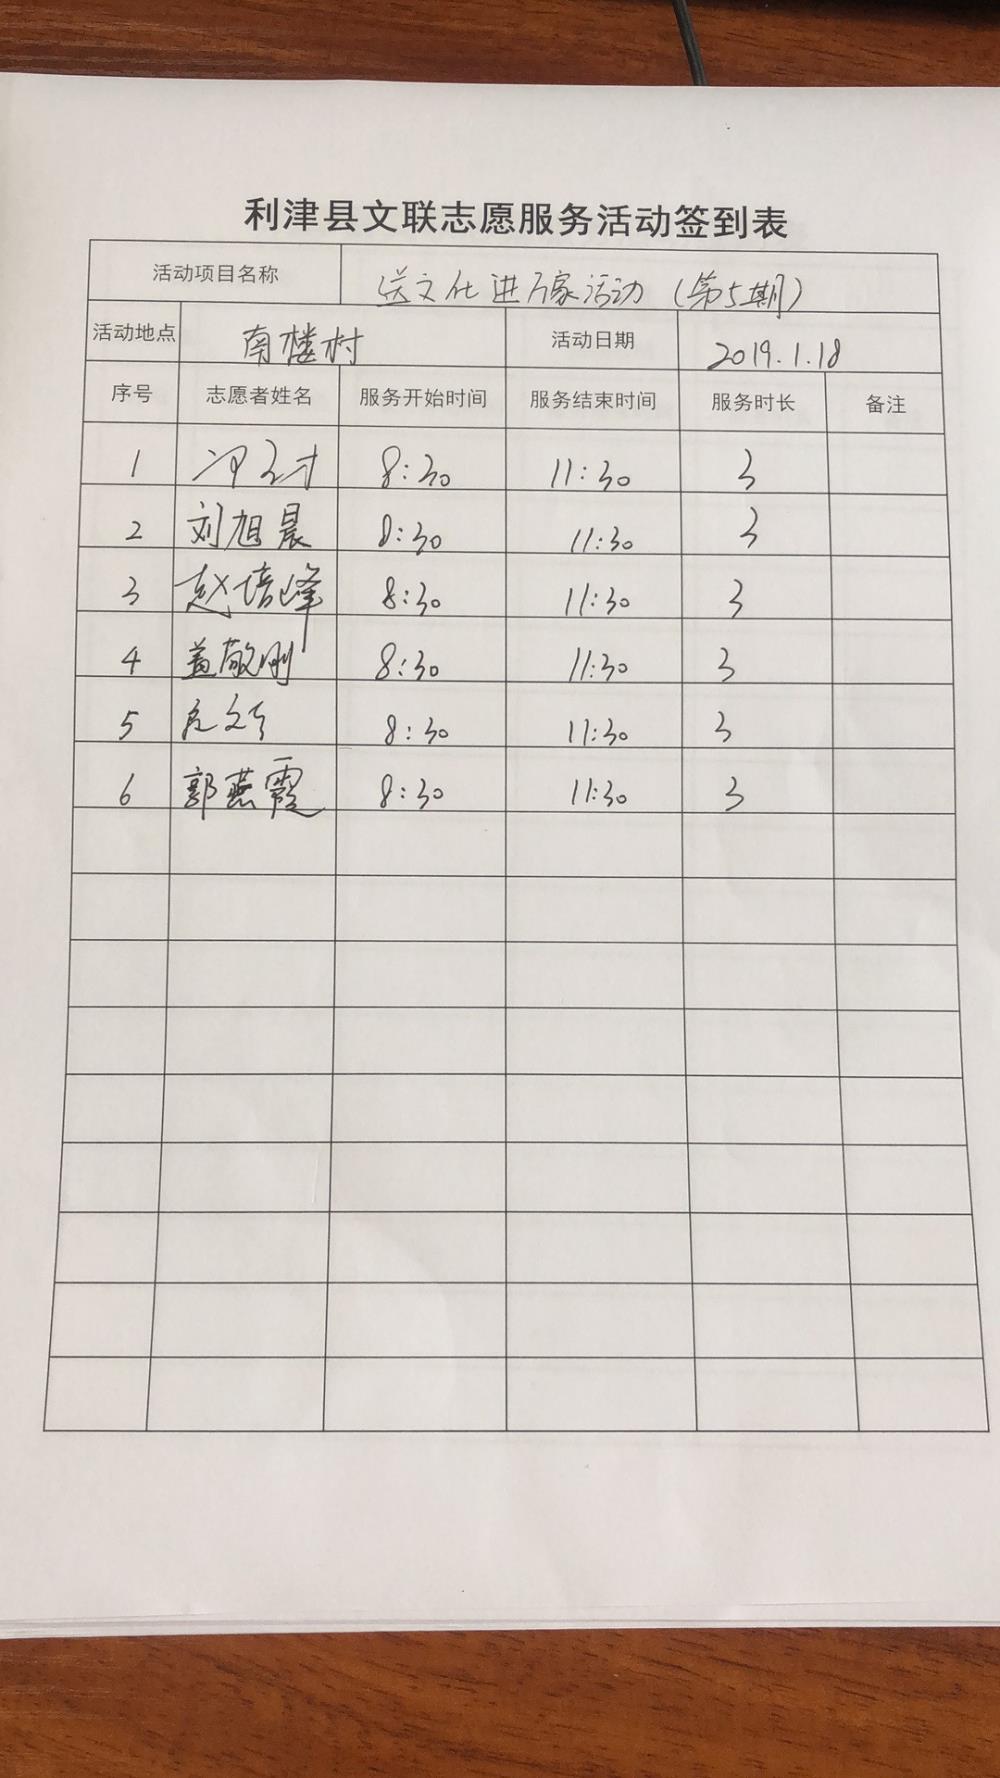 利津县文联志愿服务活动签到表
活动项目名称 送文化进万家活动（第5期）
活动地点 南楼村 活动日期 2019.1.18
序号 志愿者姓名 服务开始时间 服务结束时间 服务时长 备注
1 8:30 11:30 3
2 刘旭晨 8:30 11:30 3
3 赵培峰 8:30 11:30 3
4 盖敬刚 8:30 11:30 3
5 8:30 11:30 3
6 郭燕霞 8:30 11:30 3